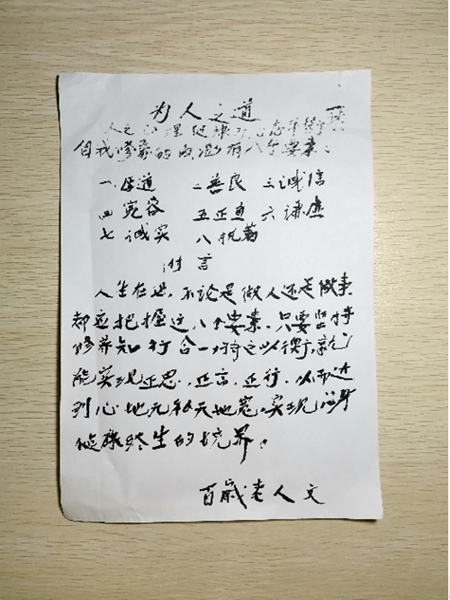 为人之道
人之心理健康和心态平衡
自我修养的内涵有八个要素：
一厚道 二善良 三诚信
四宽容 五正直 六谦虚
七诚实 八执着
附言
人生在世，不论是做人还是做事
都应把握这八个要素，只要坚持
修养知行合一持之以衡，就
能实现正思，正言，正行，从而达
到心地无私天地宽，实现
健康终生的境界。
百岁老人文